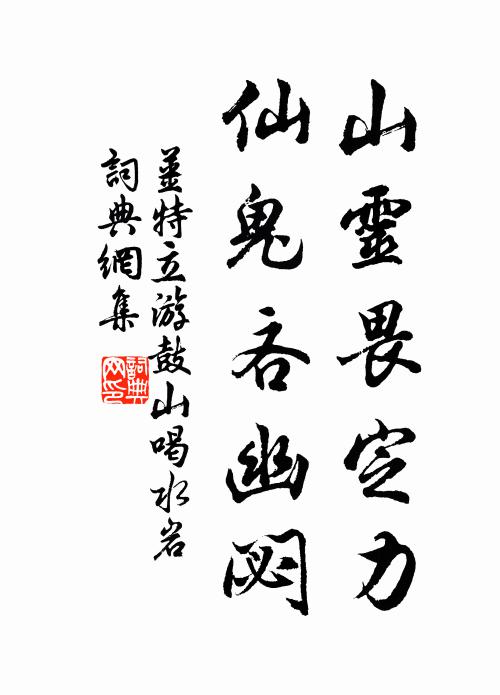 山靈畏定力
仙鬼吝幽閟
姜特立游鼓山喝水岩
詞典網集
詞典
網印